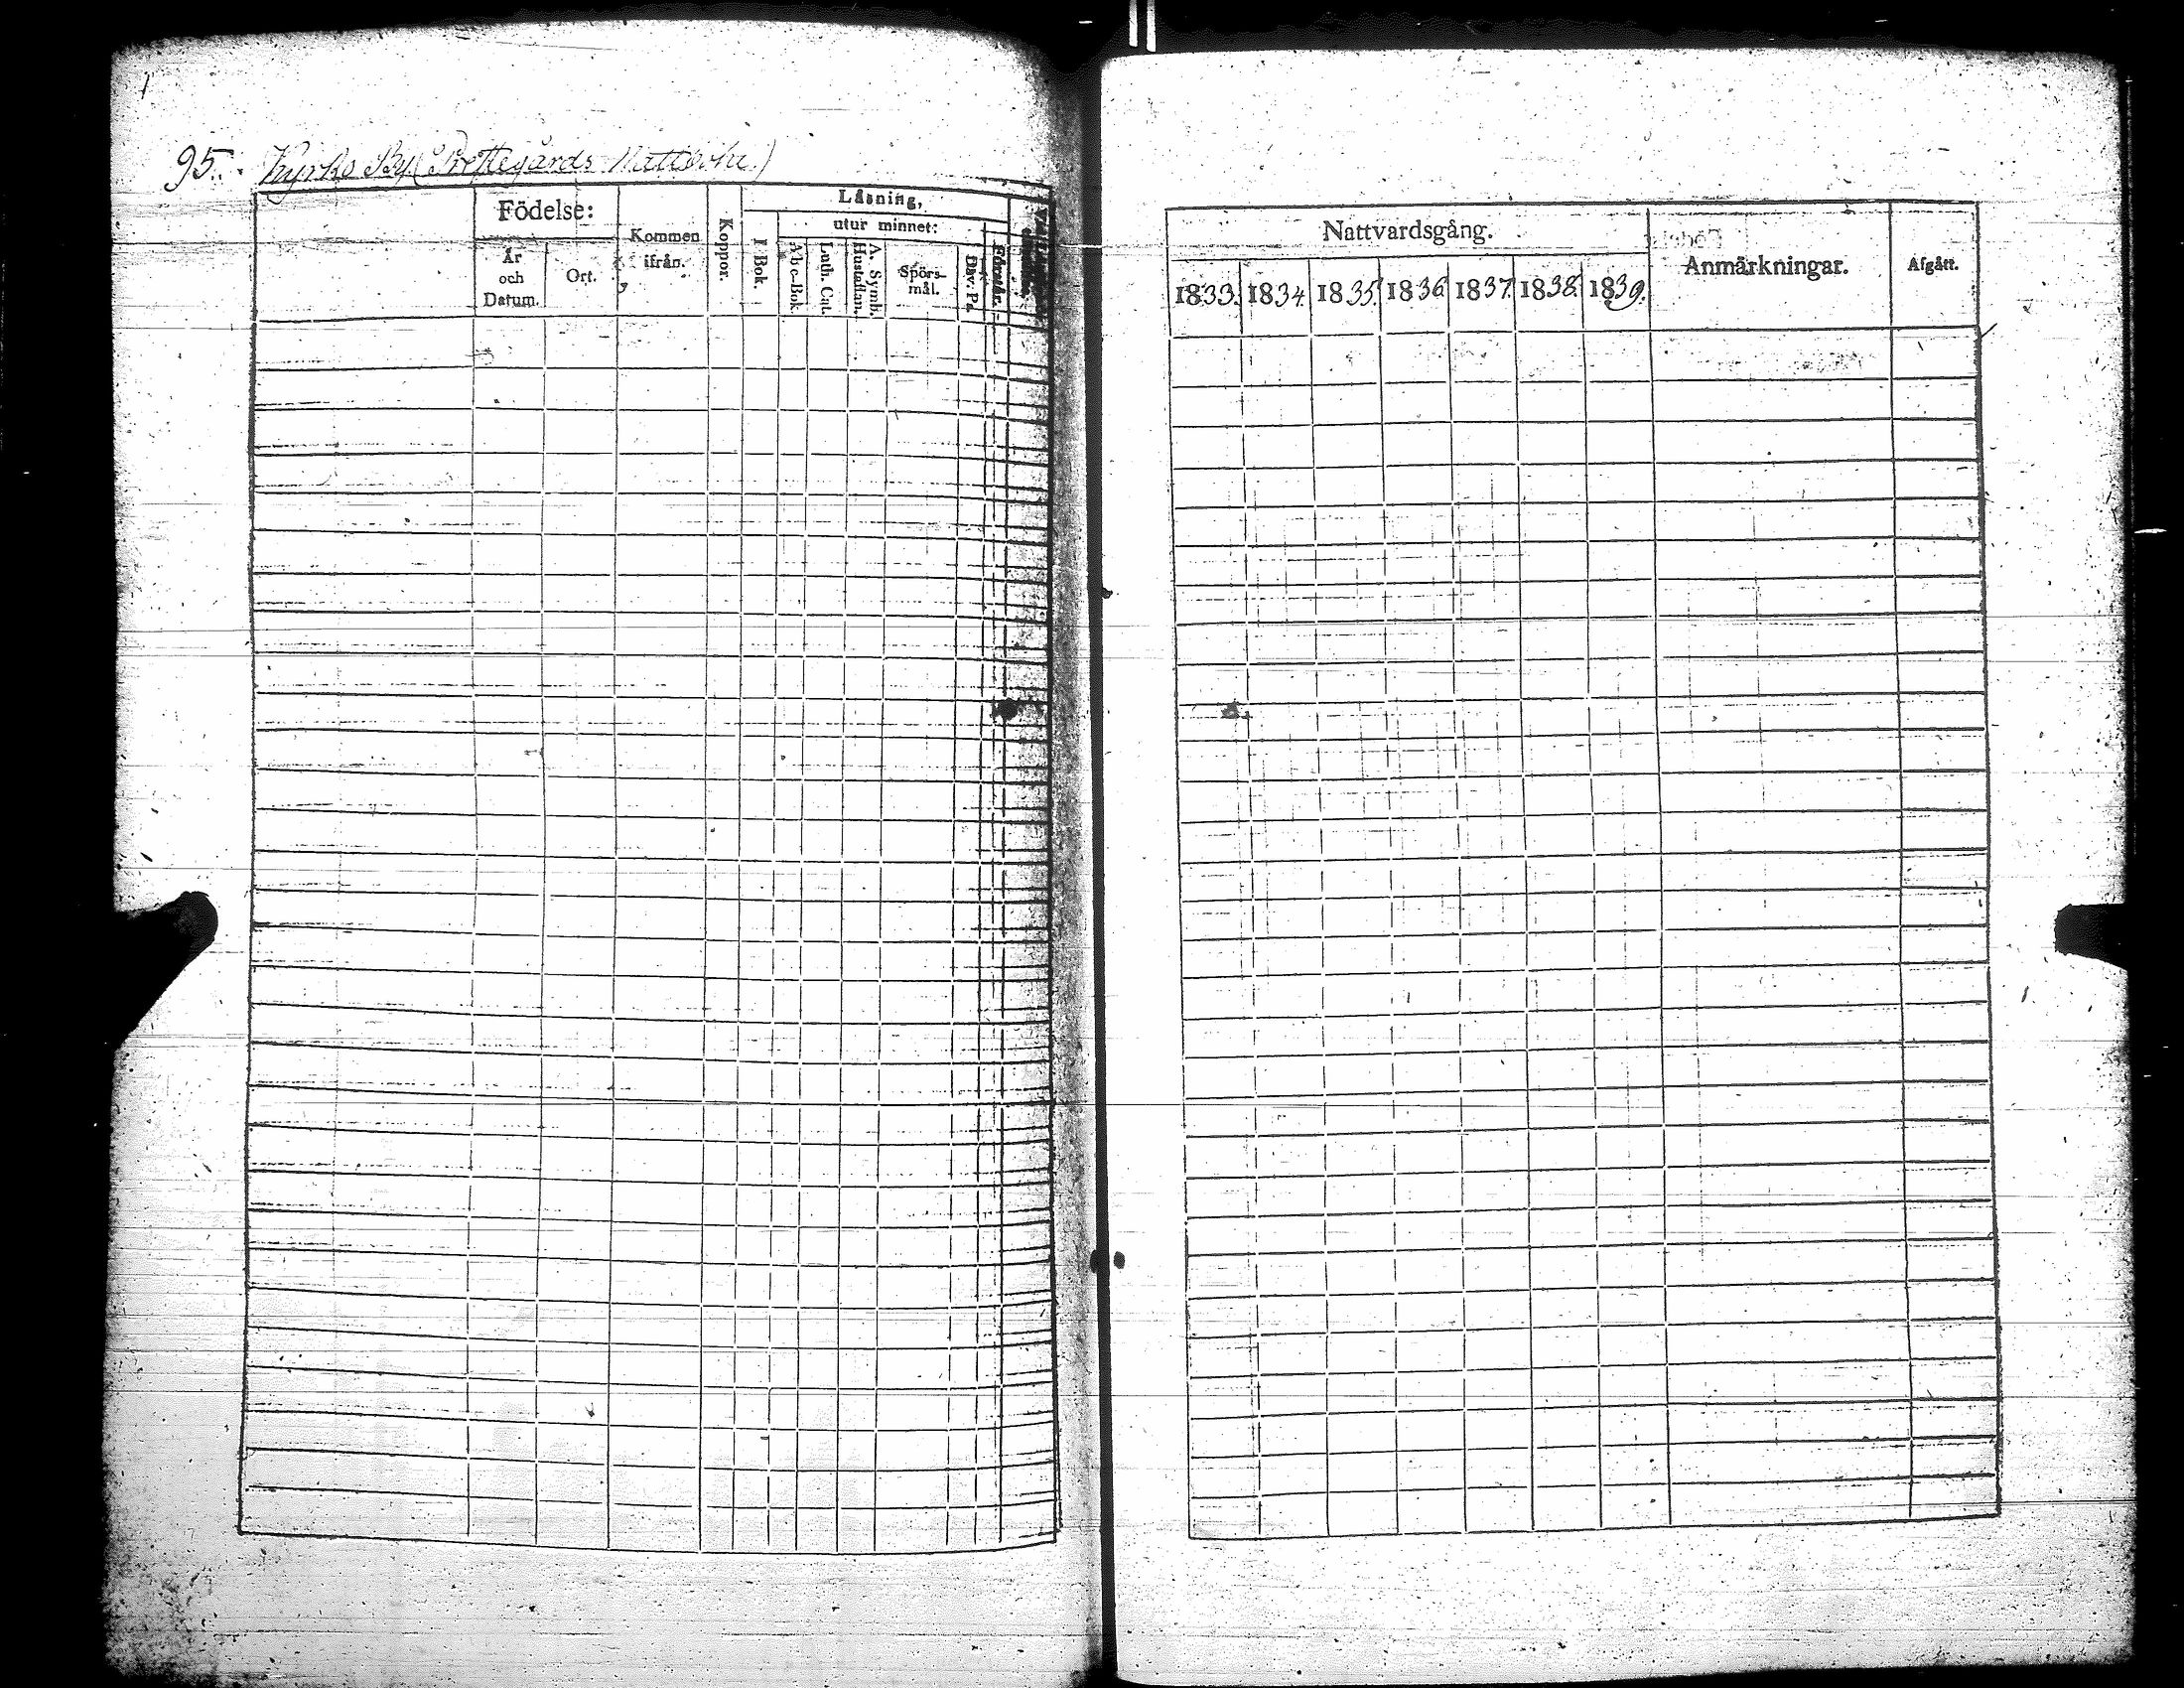 95. Kyrko By. (Prestegårds
Födelse:
År
och
Datum.
Ort.
Kommen
ifrån.
Koppor.
Läsning,
I Bok.
utur minnet:
Abc-Bok.
Luth. Cat.
A. Symb.
Hustaflan.
Spörs-
mål.
Dav. Ps.
Förstår.
Nattvardsgång.
1833. 1834 1835. 1836 1837. 1838. 1839.
Anmärkningar.
Afgått.